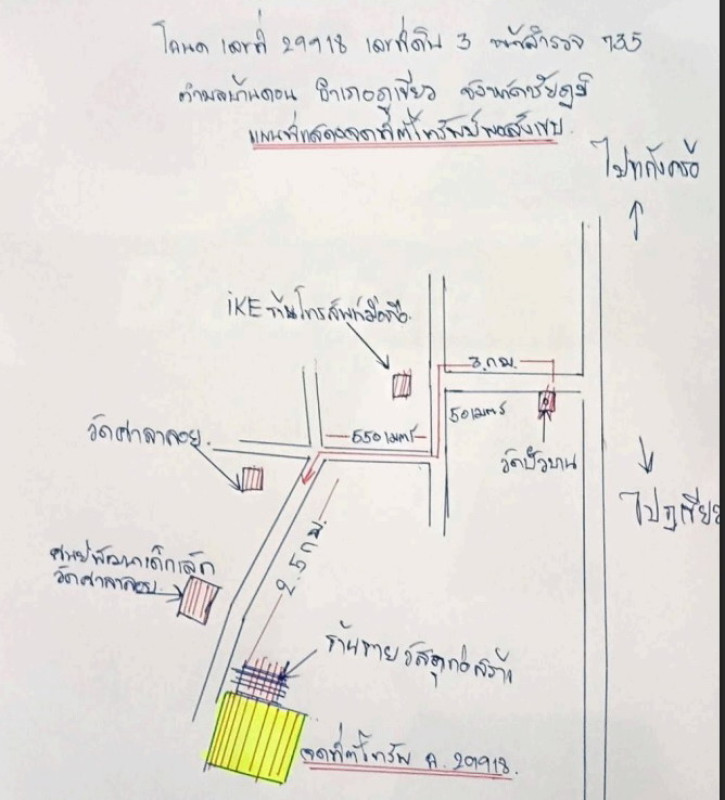 โฉนด เลขที่ 29918 เลขที่ดิน 3 หน้าสำรวจ 735
ตำบลบ้านดอน อำเภอภูเขียว จังหวัดชัยภูมิ
แผนที่แสดงจุดที่ตั้งทรัพย์พอสังเขป
ไปแก้งคร้อ
iKE ร้านโทรศัพท์มือถือ
3 กม.
50 เมตร
550 เมตร
วัดศาลาลอย
วัดบัวบาน
ไปภูเขียว
2.5 กม.
ศูนย์พัฒนาเด็กเล็ก
วัดศาลาลอย
ร้านขายวัสดุก่อสร้าง
จุดที่ตั้งทรัพย์ ฉ. 29918